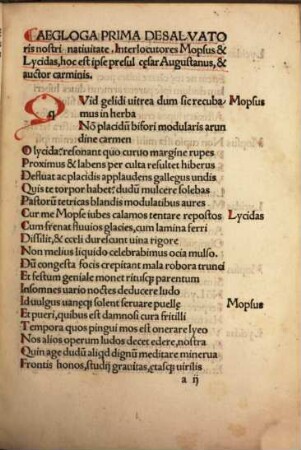 AEGLOGA PRIMA DESALVATO
ris nostri natiuitate, Interlocutores Mopsus &
Lycidas, hoc est ipse presul cęsar Augustanus, &
auctor carminis.
Q q Vid gelidi uitrea dum sic recuba Mopsus
mus in herba
Nō placidū bifori modularis arun
dine carmen
O lycida: resonant quo curuo margine rupes
Proximus & labens per culta resultet hiberus
Defluat ac placidis applaudens gallegus undis
Quis te torpor habet? dudū mulcere solebas
Pastorū tetricas blandis modulatibus aures
Cur me Mopse iubes calamos tentare repostos Lycidas
Cum frenat fluuios glacies, cum lamina ferri
Dissilit, & cęli durescunt uina rigore
Non melius liquido celebrabimus ocia mulso.
Dū congesta focis crepitant mala robora trunci
Et festum geniale monet ritusq; parentum
Insomnes uario noctes deducere ludo
Id uulgus uanęq; solent seruare puellę Mopsus
Et pueri, quibus est damnosi cura fritilli
Tempora quos pingui mos est onerare lyeo
Nos alios operum ludos decet edere, nostra
Quin age dudū aliqd dignū meditare minerua
Frontis honos, studij grauitas, ętasq; uirilis
a ij